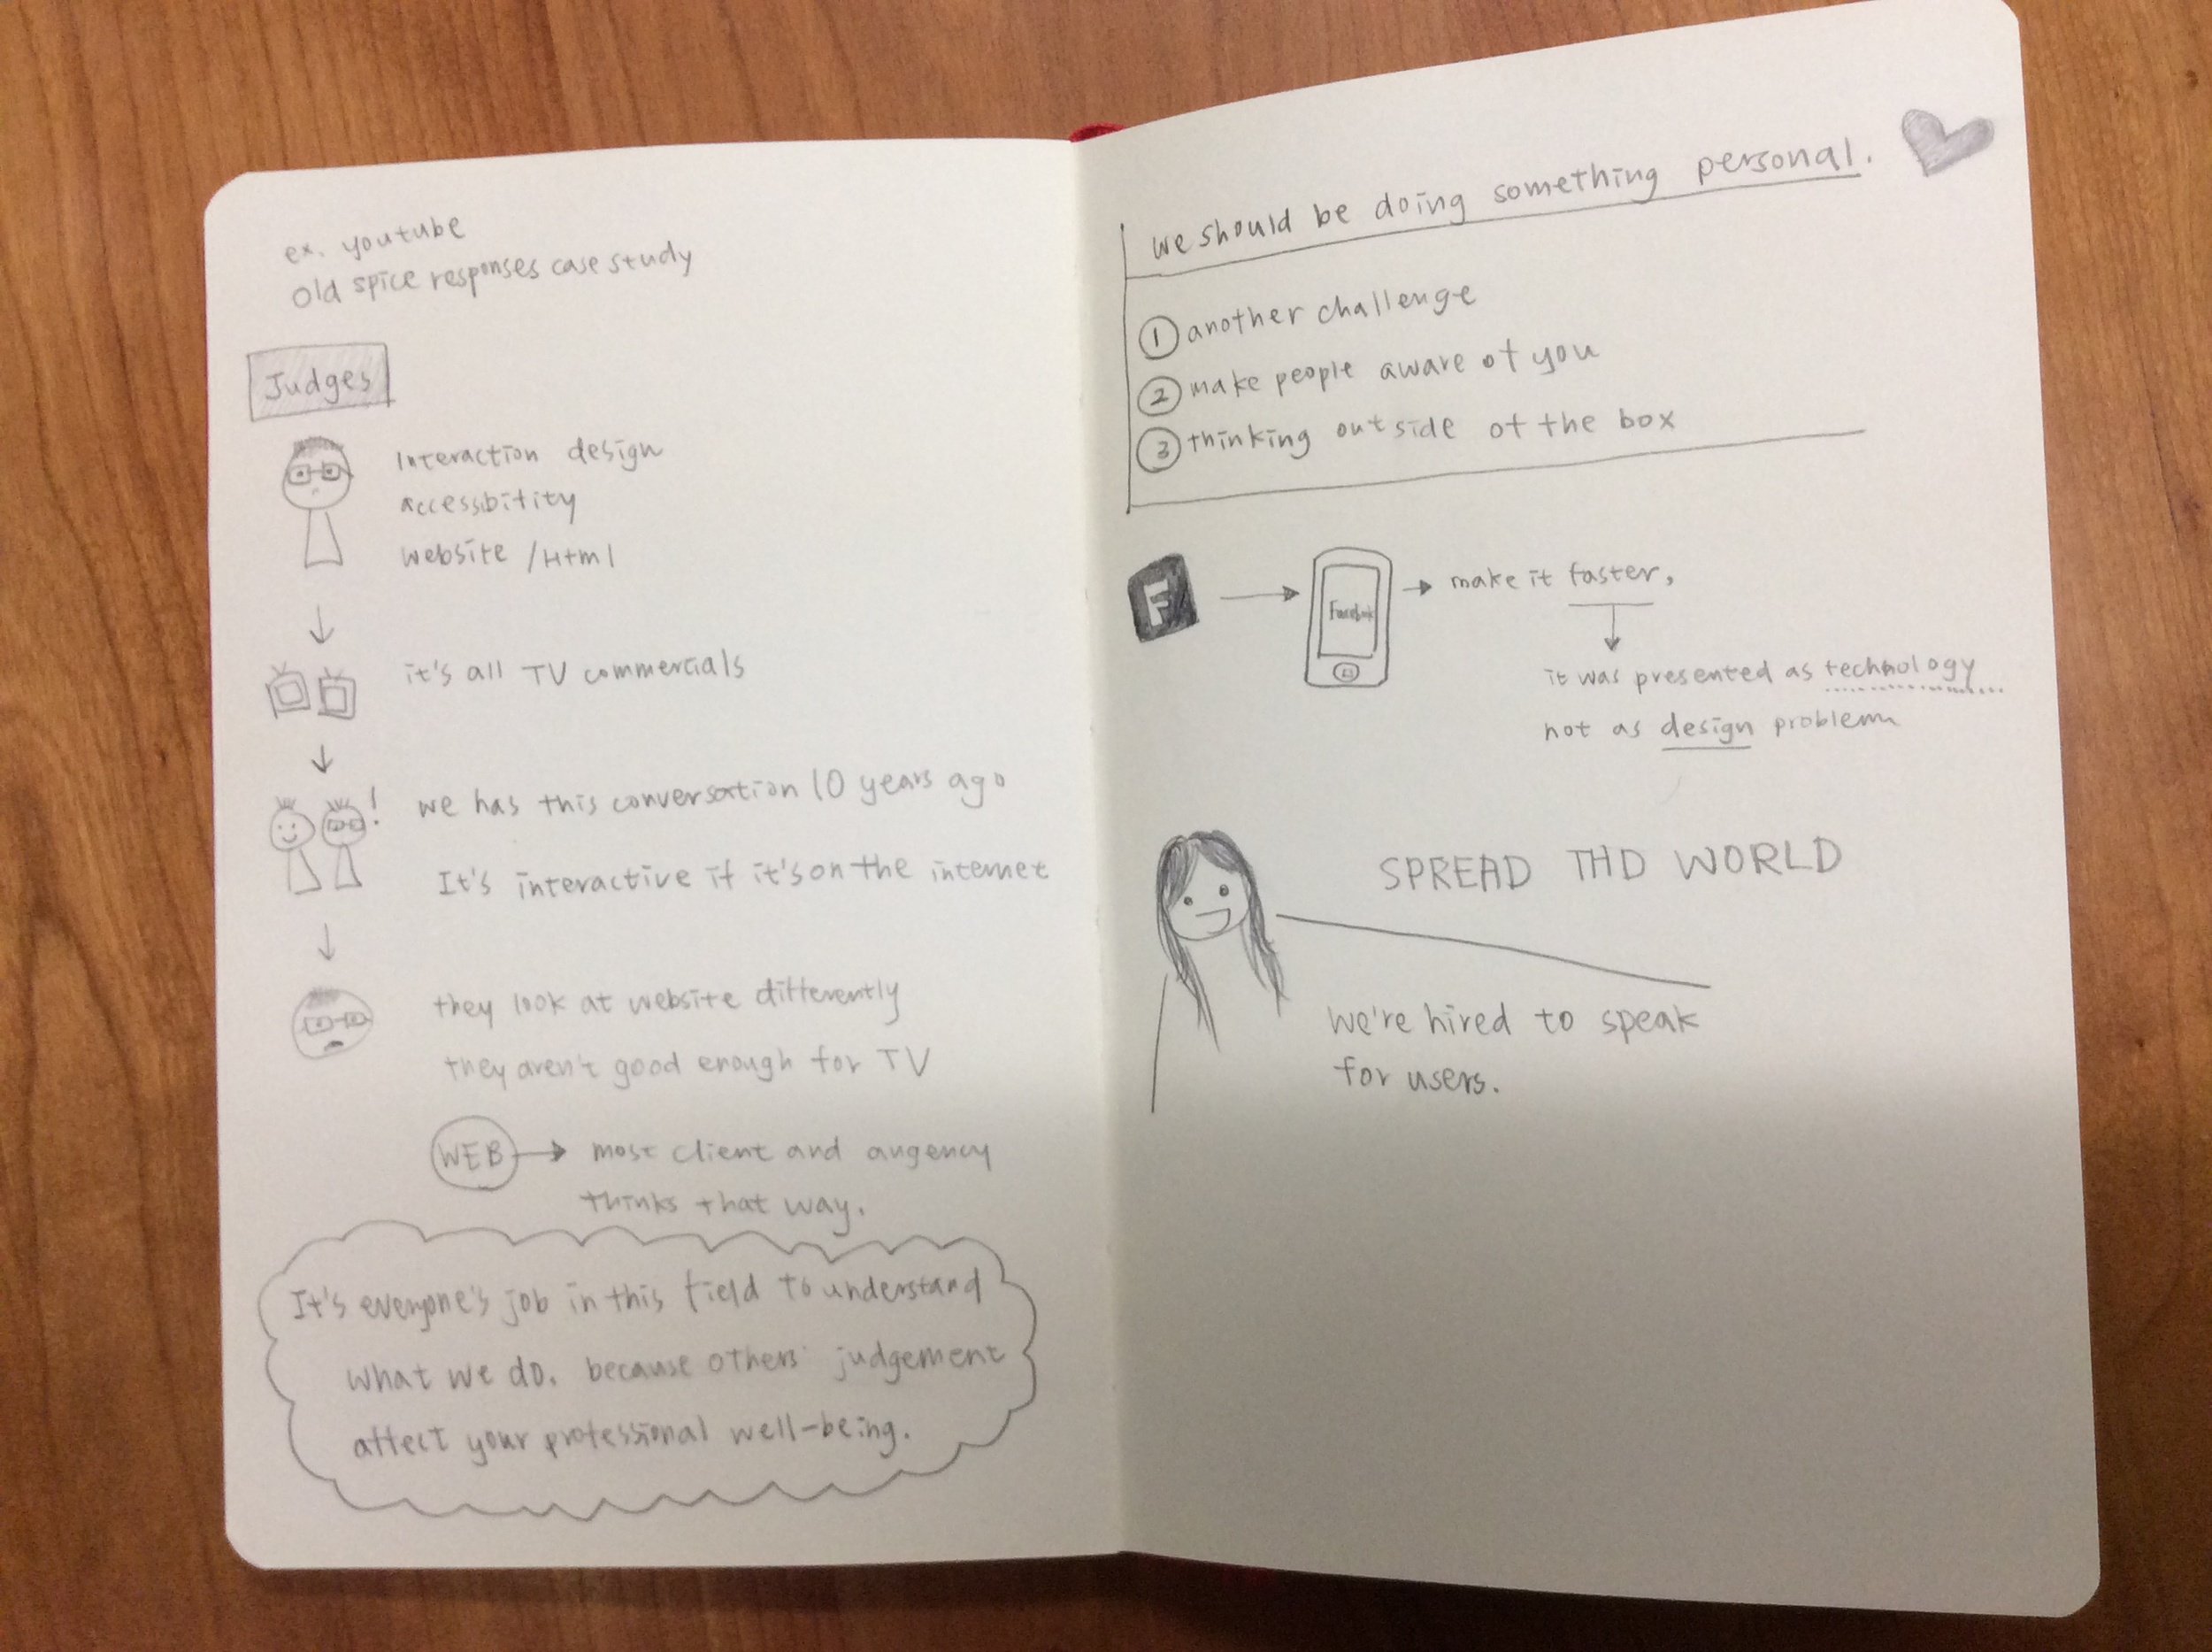 ex. youtube
Old spice responses case study
Judges
Interaction design
accessibitity
website /Html
it's all TV commercials
! we has this conversation 10 years ago
It's interactive if it's on the internet
they look at website differently
they aren't good enough for TV
WEB → most client and angency
thinks that way.
It's everyone's job in this field to understand
what we do. because others' judgement
affect your professional well-being.
we should be doing something personal.
① another challenge
② make people aware of you
③ thinking outside of the box
F → Facebook → make it faster,
it was presented as technology
not as design problem
SPREAD THD WORLD
We're hired to speak
for users.